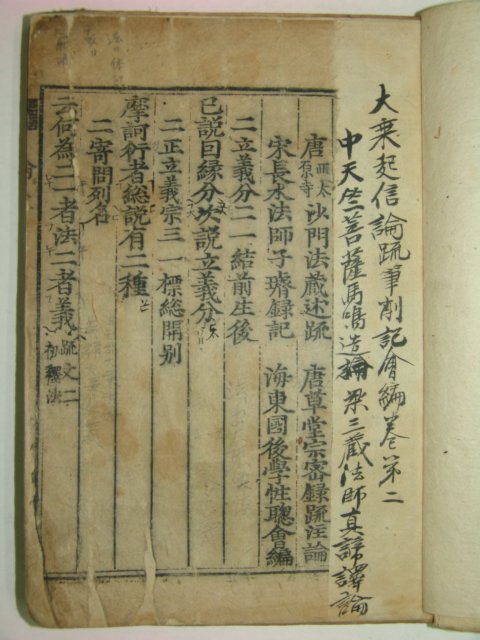 大乗起信論疏筆削記會編卷第二
中天竺菩薩馬鳴造論 梁三藏法師真諦譯論
唐西太原寺沙門法藏述疏 唐草堂宗密録疏注論
宋長水法師子璿録記 海東國後學性聰會編
二立義分二一結前生後
已説因縁分次説立義分
二正立義宗三一標總開别
摩訶衍者總説有二種
二寄問列名
云何為二一者法二者義 疏文二初釋法